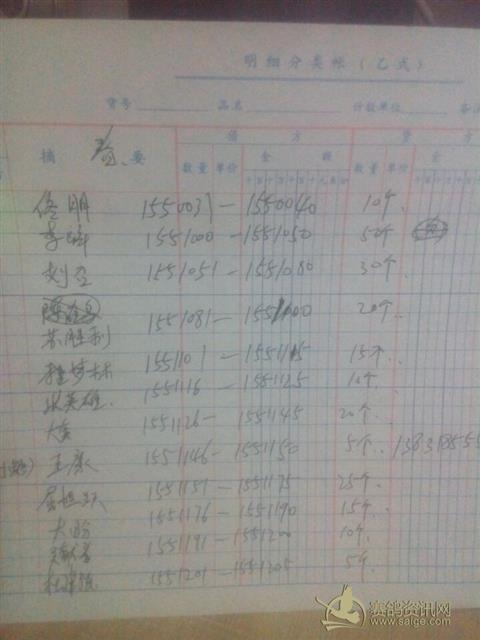 明细分类帐（乙式）
货号 品名 计数单位 备注
摘 要 借 方 贷 方
数量 单价 金 额 数量 单价 金
佟明 1550031 — 1550040 10个.
李峰 1551000 — 1551050 50个
刘 1551051 — 1551080 30个
苏胜利 1551081 — 1551100 20个
程梦林 1551101 — 1551115 15个.
张英雄. 1551116 — 1551125 10个.
大 1551126 — 1551145 20个
王 1551146 — 1551150 5个. 138318555
1551151 — 1551175 25个
大 1551176 — 1551190 15个
1551191 — 1551200 10个
1551201 — 1551205 5个
赛鸽资讯网
www.saige.com